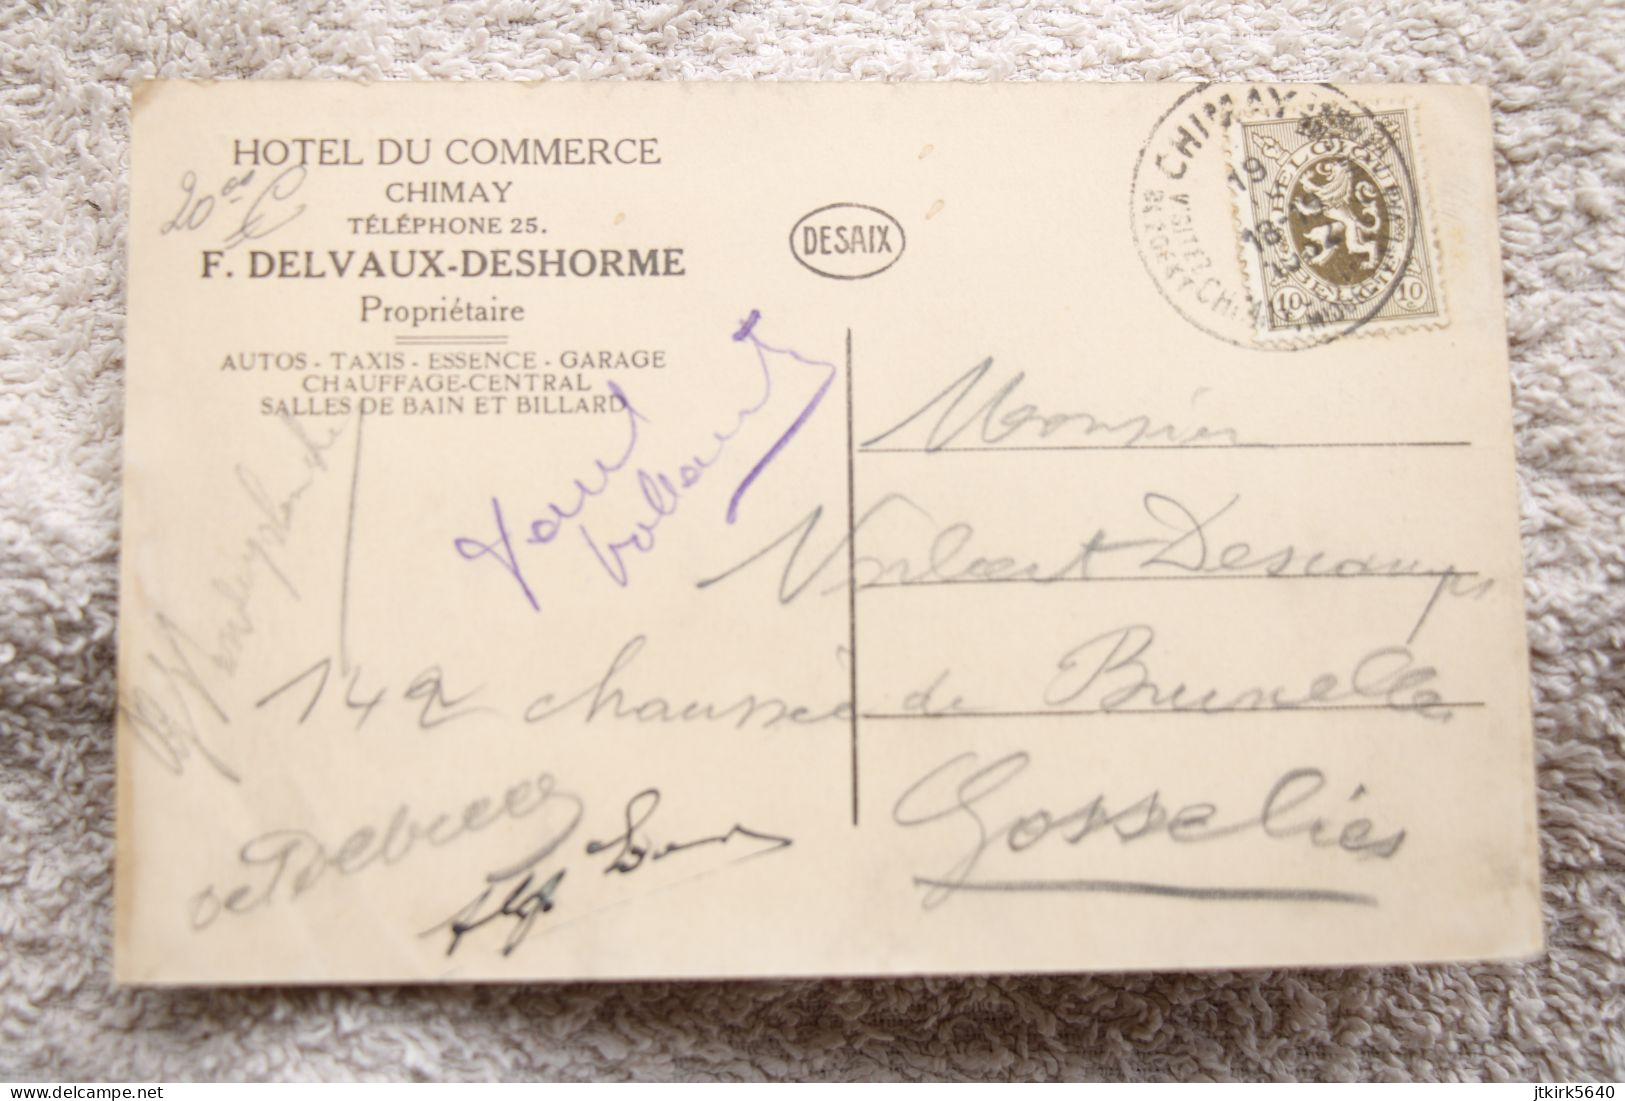 HOTEL DU COMMERCE
CHIMAY
TÉLÉPHONE 25.
F. DELVAUX-DESHORME
Propriétaire
AUTOS - TAXIS - ESSENCE - GARAGE
CHAUFFAGE-CENTRAL
SALLES DE BAIN ET BILLARD
20
DESAIX
CHIMAY
VISITEZ CHIMAY
19
18
BELGIQUE
BELGIË
10 10
Monsieur
Norbert Descamps
142 chaussée de Bruxelles
Gosselies
Alf
delcampe.net
jtkirk5640